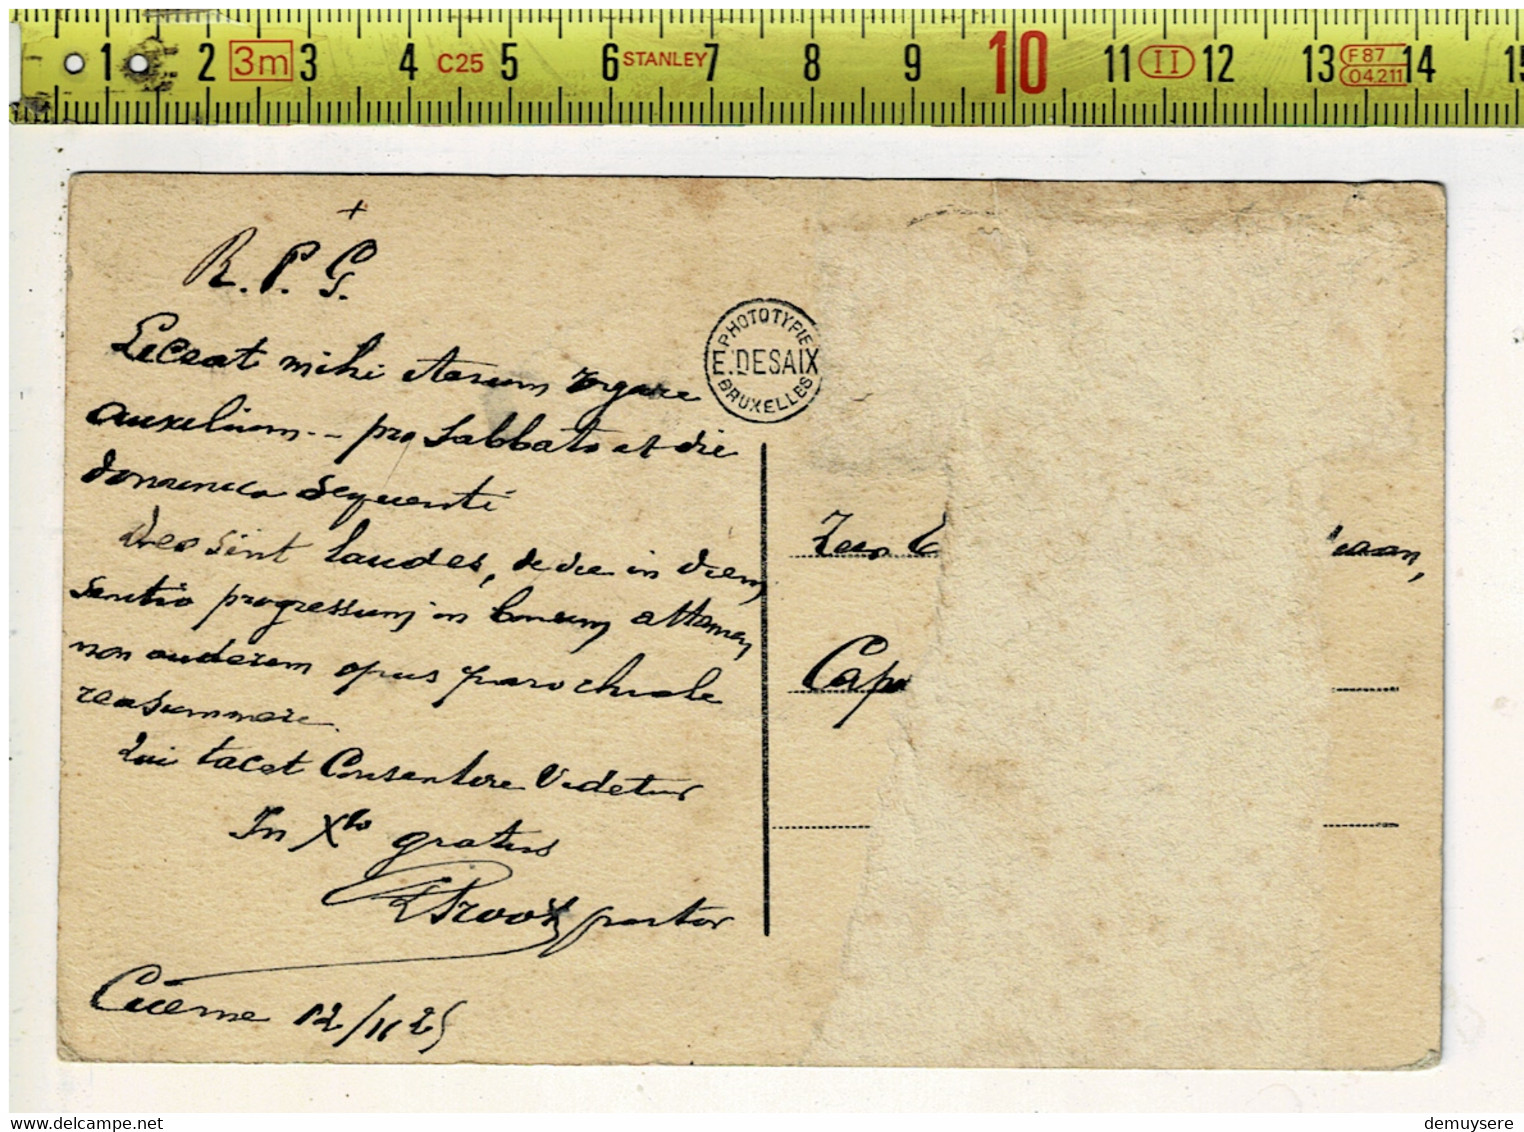 1 2 3m 3 4 C25 5 6 STANLEY 7 8 9 10 11 II 12 13 F87 04.211 14 15
+
R. P. G.
PHOTOTYPIE
E. DESAIX
BRUXELLES
Liceat mihi iterum rogare
auxilium -- pro Sabbato et die
dominica sequenti
Deo sint laudes, de die in diem
sentio progressum in bonum attamen
non auderem opus parochiale
reassummere.
Qui tacet Consentire Videtur
In Xto gratus
pastor
12/11 25
Zeer E
aan,
Cap
demuysere